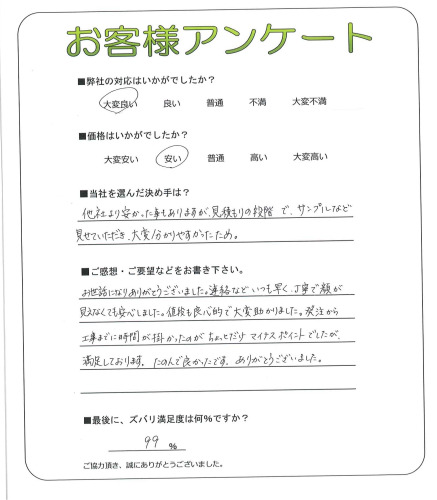 お客様アンケート
■弊社の対応はいかがでしたか？
大変良い 良い 普通 不満 大変不満
■価格はいかがでしたか？
大変安い 安い 普通 高い 大変高い
■当社を選んだ決め手は？
他社より安かった事もありますが、見積もりの段階で、サンプルなど
見せていただき、大変分かりやすかったため。
■ご感想・ご要望などをお書き下さい。
お世話になりありがとうございました。連絡などいつも早く、丁寧で顔が
見えなくても安心しました。値段も良心的で大変助かりました。発注から
工事までに時間が掛かったのがちょっとだけマイナスポイントでしたが、
満足しております。たのんで良かったです。ありがとうございました。
■最後に、ズバリ満足度は何％ですか？
99 ％
ご協力頂き、誠にありがとうございました。